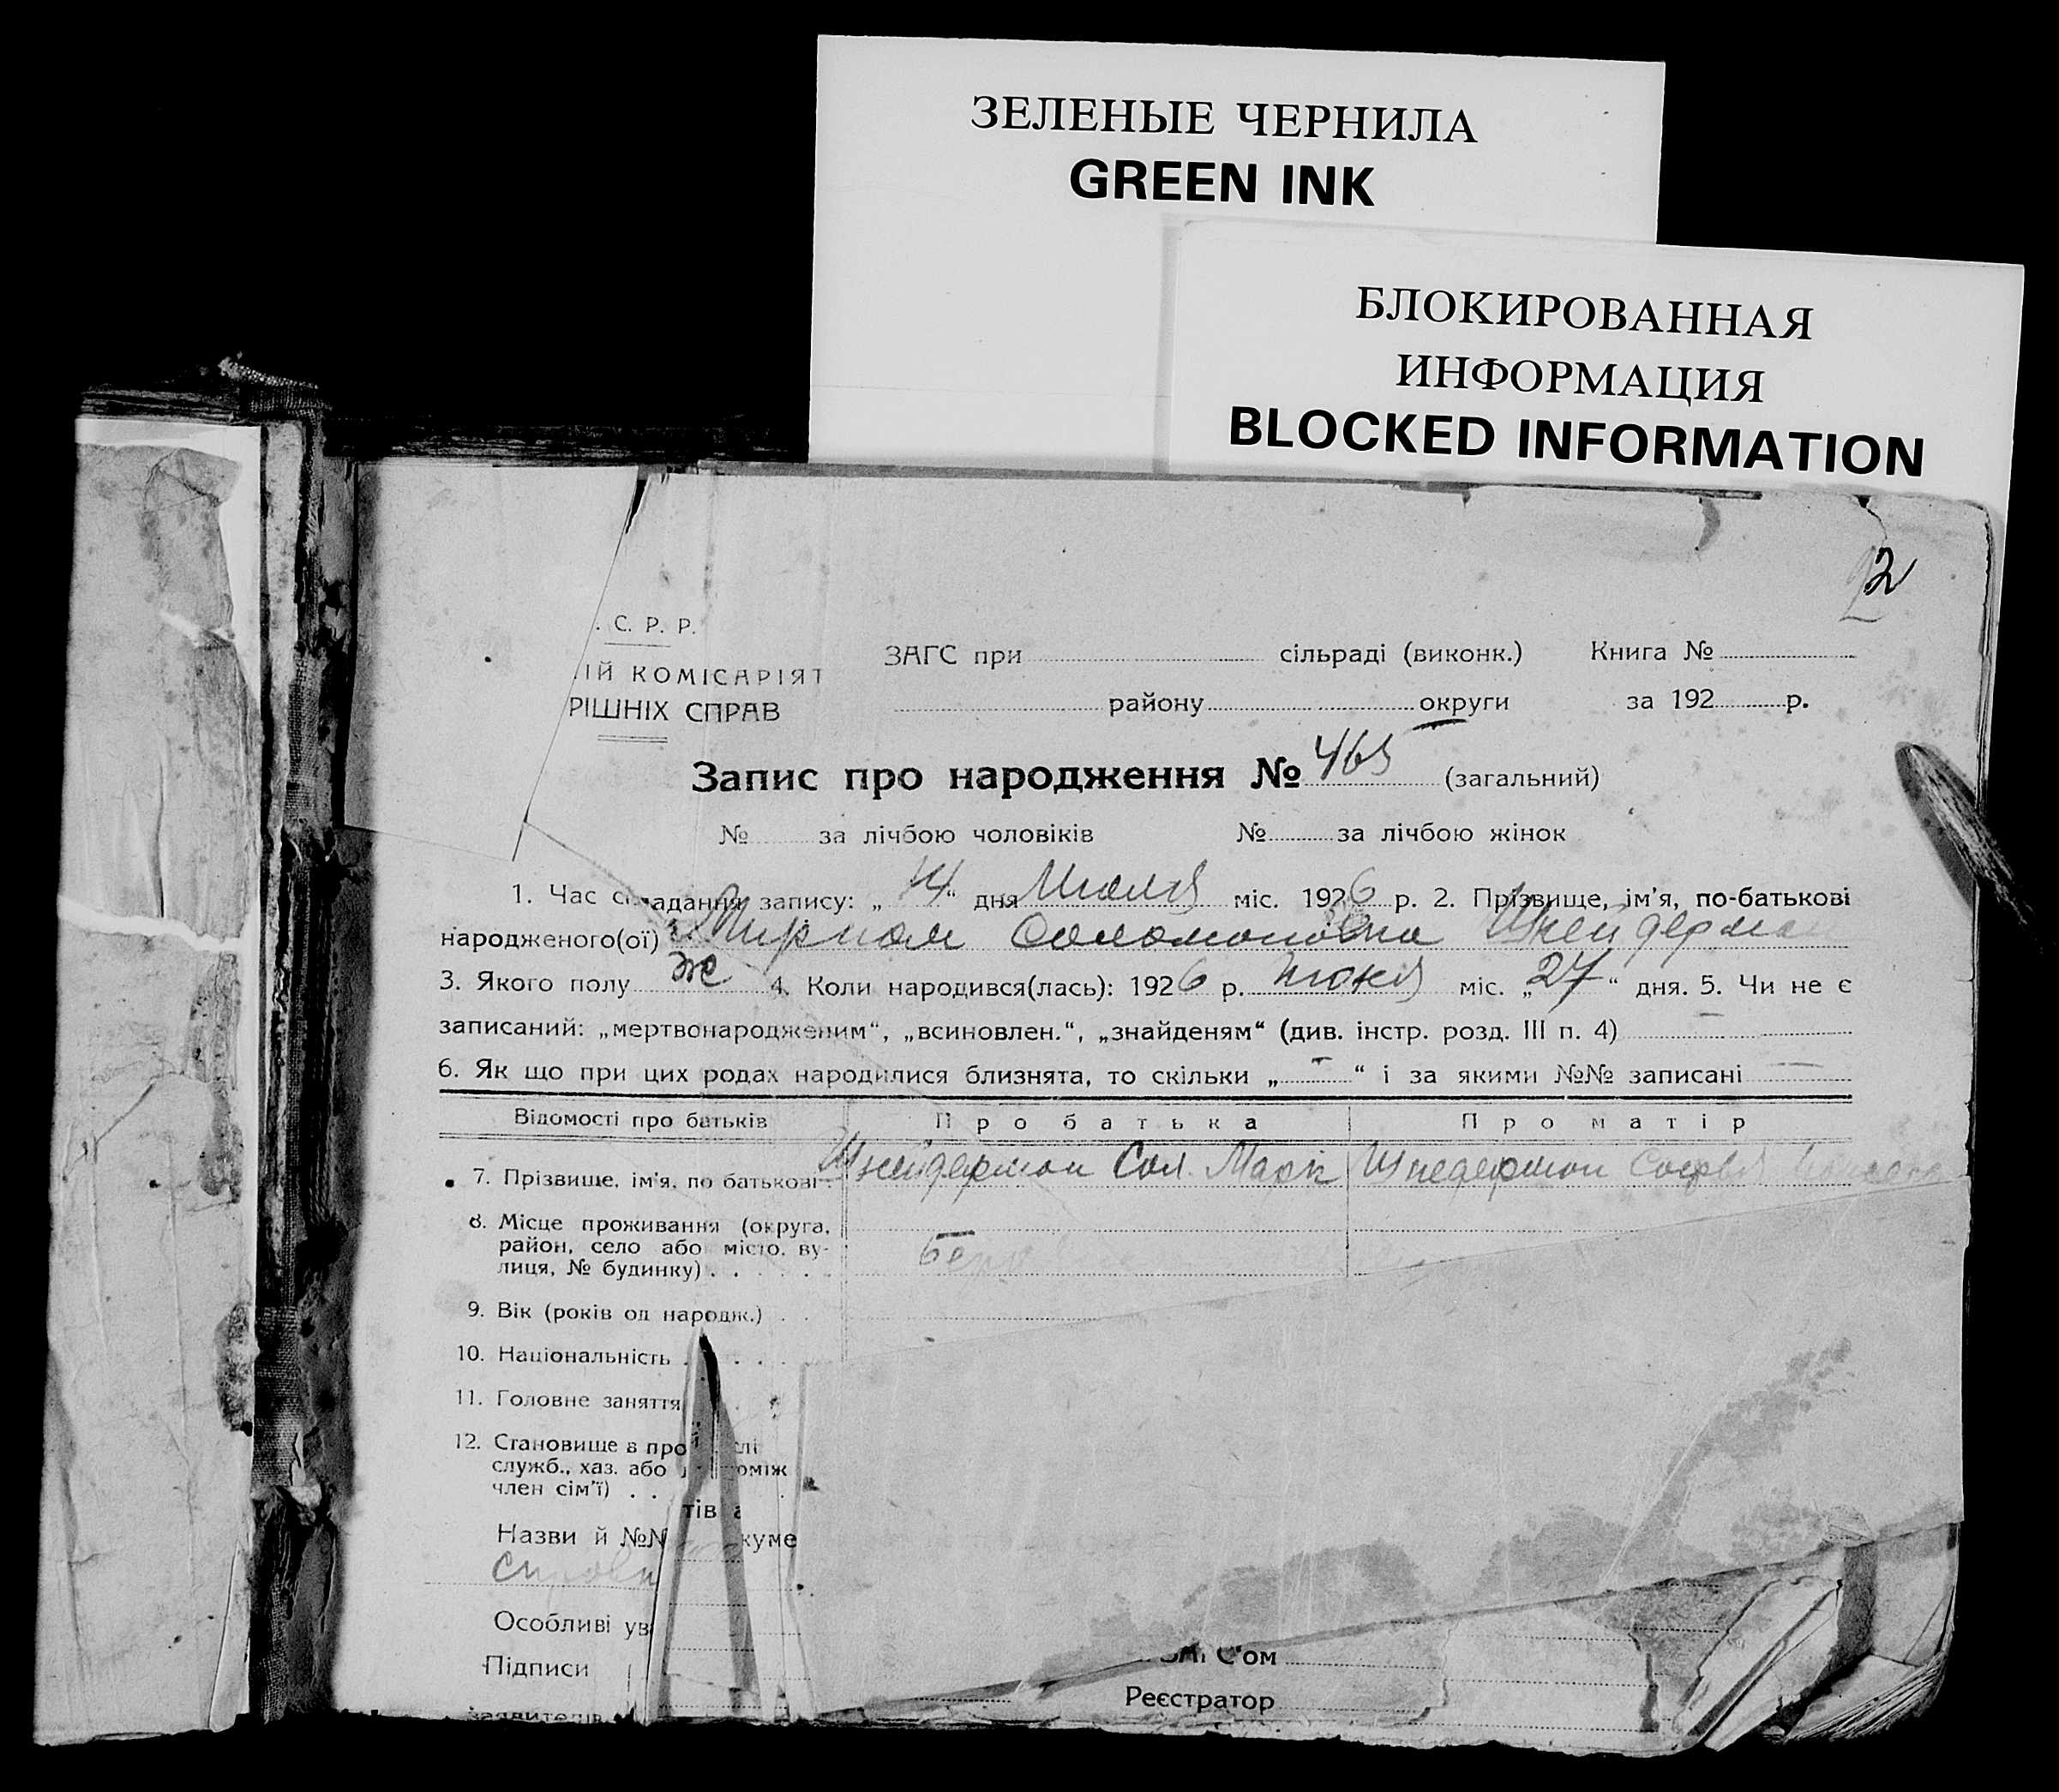 ЗЕЛЕНЫЕ ЧЕРНИЛА
GREEN INK
БЛОКИРОВАННАЯ
ИНФОРМАЦИЯ
BLOCKED INFORMATION
2
. С. Р. Р.
ІЙ КОМІСАРІЯТ
РІШНІХ СПРАВ
ЗАГС при сільраді (виконк.) Книга №
району округи за 192 р.
Запис про народження № 465 (загальний)
№ за лічбою чоловіків № за лічбою жінок
1. Час складання запису: „ 14 “ дня Июля міс. 1926 р. 2. Прізвище, ім'я, по-батькові
народженого(ої) Мириам Соломоновна Шнейдерман
3. Якого полу ж 4. Коли народився(лась): 1926 р. июня міс. „27“ дня. 5. Чи не є
записаний: „мертвонародженим“, „всиновлен.“, „знайденям“ (див. інстр. розд. III п. 4) —
6. Як що при цих родах народилися близнята, то скільки „ — “ і за якими №№ записані —
Відомості про батьків Про батька Про матір
7. Прізвище, ім'я, по батькові Шнейдерман Сол. Марк Шнедерман Софья
8. Місце проживання (округа,
район, село або місто, ву-
лиця, № будинку) . . . . . .
9. Вік (років од народж.) . .
10. Національність . . . . .
11. Головне заняття
12. Становище в про
служб., хаз. або оміж
член сім'ї) . .
тів
Назви й №№ куме
Особливі ув
Підписи
С'ом
Реєстратор
заявителів